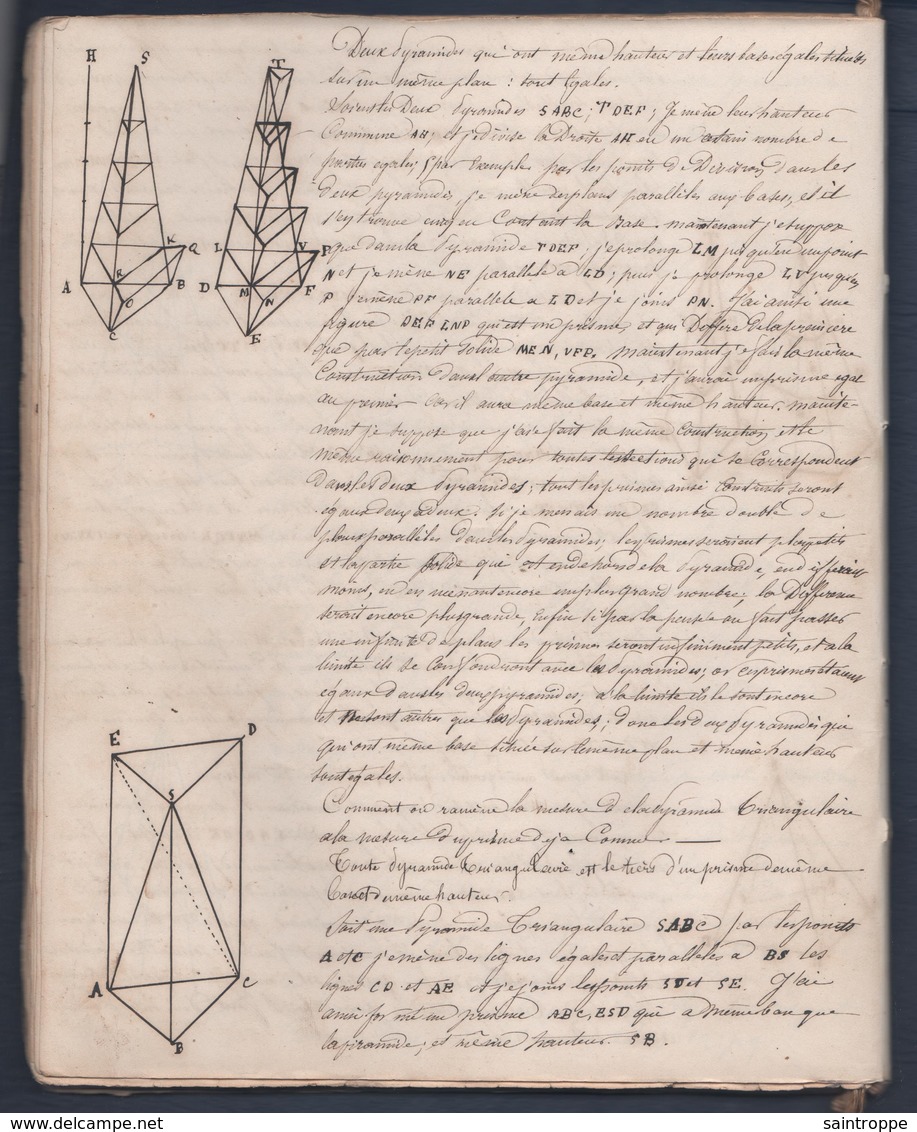 Deux Pyramides qui ont même hauteur et leurs bases égales situées
sur un même plan : sont égales.
Soient les Deux Pyramides SABC; TDEF; Je mène leur hauteur
Commune AH; et je divise la Droite AH en un certain nombre de
parties egales, 5 par Exemple, par les points de Division, dans les
deux pyramides, je mène des plans parallèles aux bases, et il
s'en trouve cinq en Contant la Base. maintenant je suppose
que dans la Pyramide TDEF, je prolonge LM jusqu'en un point
N et je mène NE parallele a LD; puis je prolonge LV jusqu'en
P je mène PF parallele a LD et je joins PN. J'ai ainsi une
figure DEF LNP qui est un prisme, et qui Differe de la premiere
que par le petit Solide MEN, VFP. maintenant je fais la même
Construction dans l'autre pyramide, et j'aurai un prisme egal
au premier car il aura même base et même hauteur. mainte-
nant je suppose que j'aie fait la même construction, et le
même raisonnement pour toutes les sections qui se Correspondent
Dans les deux Pyramides; tous les prismes ainsi construits seront
egaux deux a deux. Si je menais un nombre double de
plans parallèles dans les Pyramides, les prismes seraient plus petits
et la partie solide qui est en dehors de la Pyramide, en differerait
moins, et en menant encore un plus grand nombre; la Difference
serait encore plus grande, Enfin si par la pensée on fait passer
une infinité de plans les prismes seront infiniment petits, et a la
limite ils se confondront avec les Pyramides; or ces prismes etaient
égaux dans les deux pyramides; à la limite ils le sont encore
et ne sont autres que les Pyramides; donc les deux Pyramides qui
qui ont même base située sur le même plan et même hauteur
sont égales.
Comment on ramène la mesure de la Pyramide Triangulaire
a la mesure du prisme deja Connue
Toute Pyramide Triangulaire est le tiers d'un prisme de même
base et de même hauteur.
Soit une Pyramide Triangulaire SABC par les points
A et C je mène des lignes égales et paralleles a BS les
lignes CD et AE et je joins les points SD et SE. J'ai
ainsi formé un prisme ABC, ESD qui a même base que
la piramide, et même hauteur SB.
H
S
T
K
Q
L
V
P
A
R
B
D
M
F
O
N
C
E
E
D
S
A
C
B
saintroppe